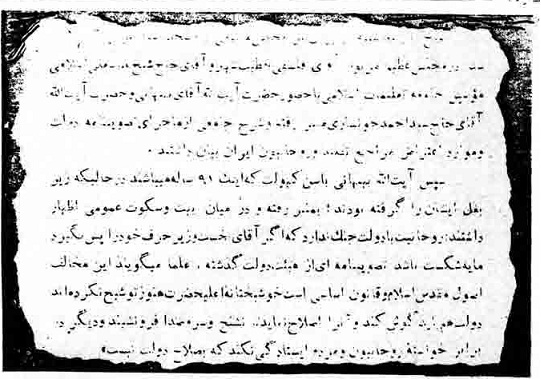 در مجلس عظیم مزبور آقای فلسفی خطیب شهیر و آقای حاج شیخ عباسعلی اسلامی
مؤسس جامعه تعلیمات اسلامی با حضور حضرت آیت الله آقای بهبهانی و حضرت آیت الله
آقای حاج سید احمد خونساری منبر رفته و شرح جامعی از ماجرای تصویبنامه دولت
و موارد اعتراض مراجع تقلید و روحانیون ایران بیان داشتند .
سپس آیت الله بهبهانی باسن کهولت که اینک ۹۱ ساله میباشند در حالیکه زیر
بغل ایشان را گرفته بودند ؛ بمنبر رفته و در میان بهت و سکوت عمومی اظهار
داشتند : روحانیت با دولت جنگ ندارد که اگر آقای نخست وزیر حرف خود را پس بگیرد
مایه شکست باشد تصویبنامه ای از هیئت دولت گذشته ، علما میگویند این مخالف
اصول مقدس اسلام و قانون اساسی است خوشبختانه اعلیحضرت هنوز توشیح نکرده اند
دولت هم باید گوش کند و آنرا اصلاح نماید تا تشنج و سر و صدا فرو نشیند و دیگر در
برابر خواسته روحانیون و مردم ایستادگی نکند که بصلاح دولت نیست